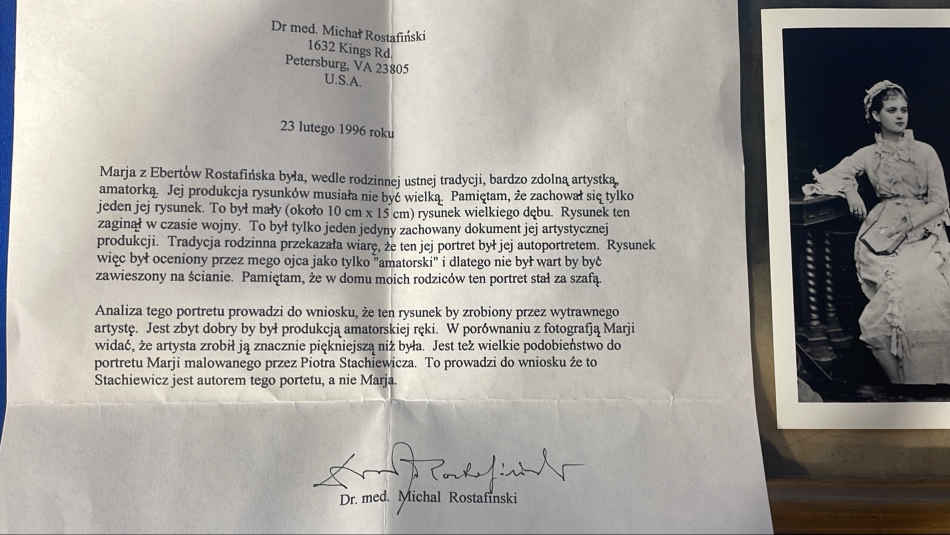 Dr med. Michał Rostafiński
1632 Kings Rd.
Petersburg, VA 23805
U.S.A.
23 lutego 1996 roku
Marja z Ebertów Rostafińska była, wedle rodzinnej ustnej tradycji, bardzo zdolną artystką,
amatorką. Jej produkcja rysunków musiała nie być wielką. Pamiętam, że zachował się tylko
jeden jej rysunek. To był mały (około 10 cm x 15 cm) rysunek wielkiego dębu. Rysunek ten
zaginął w czasie wojny. To był tylko jeden jedyny zachowany dokument jej artystycznej
produkcji. Tradycja rodzinna przekazała wiarę, że ten jej portret był jej autoportretem. Rysunek
więc był oceniony przez mego ojca jako tylko "amatorski" i dlatego nie był wart by być
zawieszony na ścianie. Pamiętam, że w domu moich rodziców ten portret stał za szafą.
Analiza tego portretu prowadzi do wniosku, że ten rysunek by zrobiony przez wytrawnego
artystę. Jest zbyt dobry by był produkcją amatorskiej ręki. W porównaniu z fotografją Marji
widać, że artysta zrobił ją znacznie piękniejszą niż była. Jest też wielkie podobieństwo do
portretu Marji malowanego przez Piotra Stachiewicza. To prowadzi do wniosku że to
Stachiewicz jest autorem tego portetu, a nie Marja.
Rostafiński
Dr. med. Michal Rostafinski